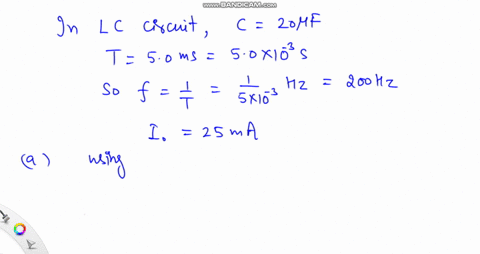 WWW.BANDICAM.COM
In LC circuit, C = 20μF
T = 5.0 ms = 5.0×10⁻³ s
So f = 1/T = 1/5×10⁻³ Hz = 200Hz
I₀ = 25 mA
(a) using